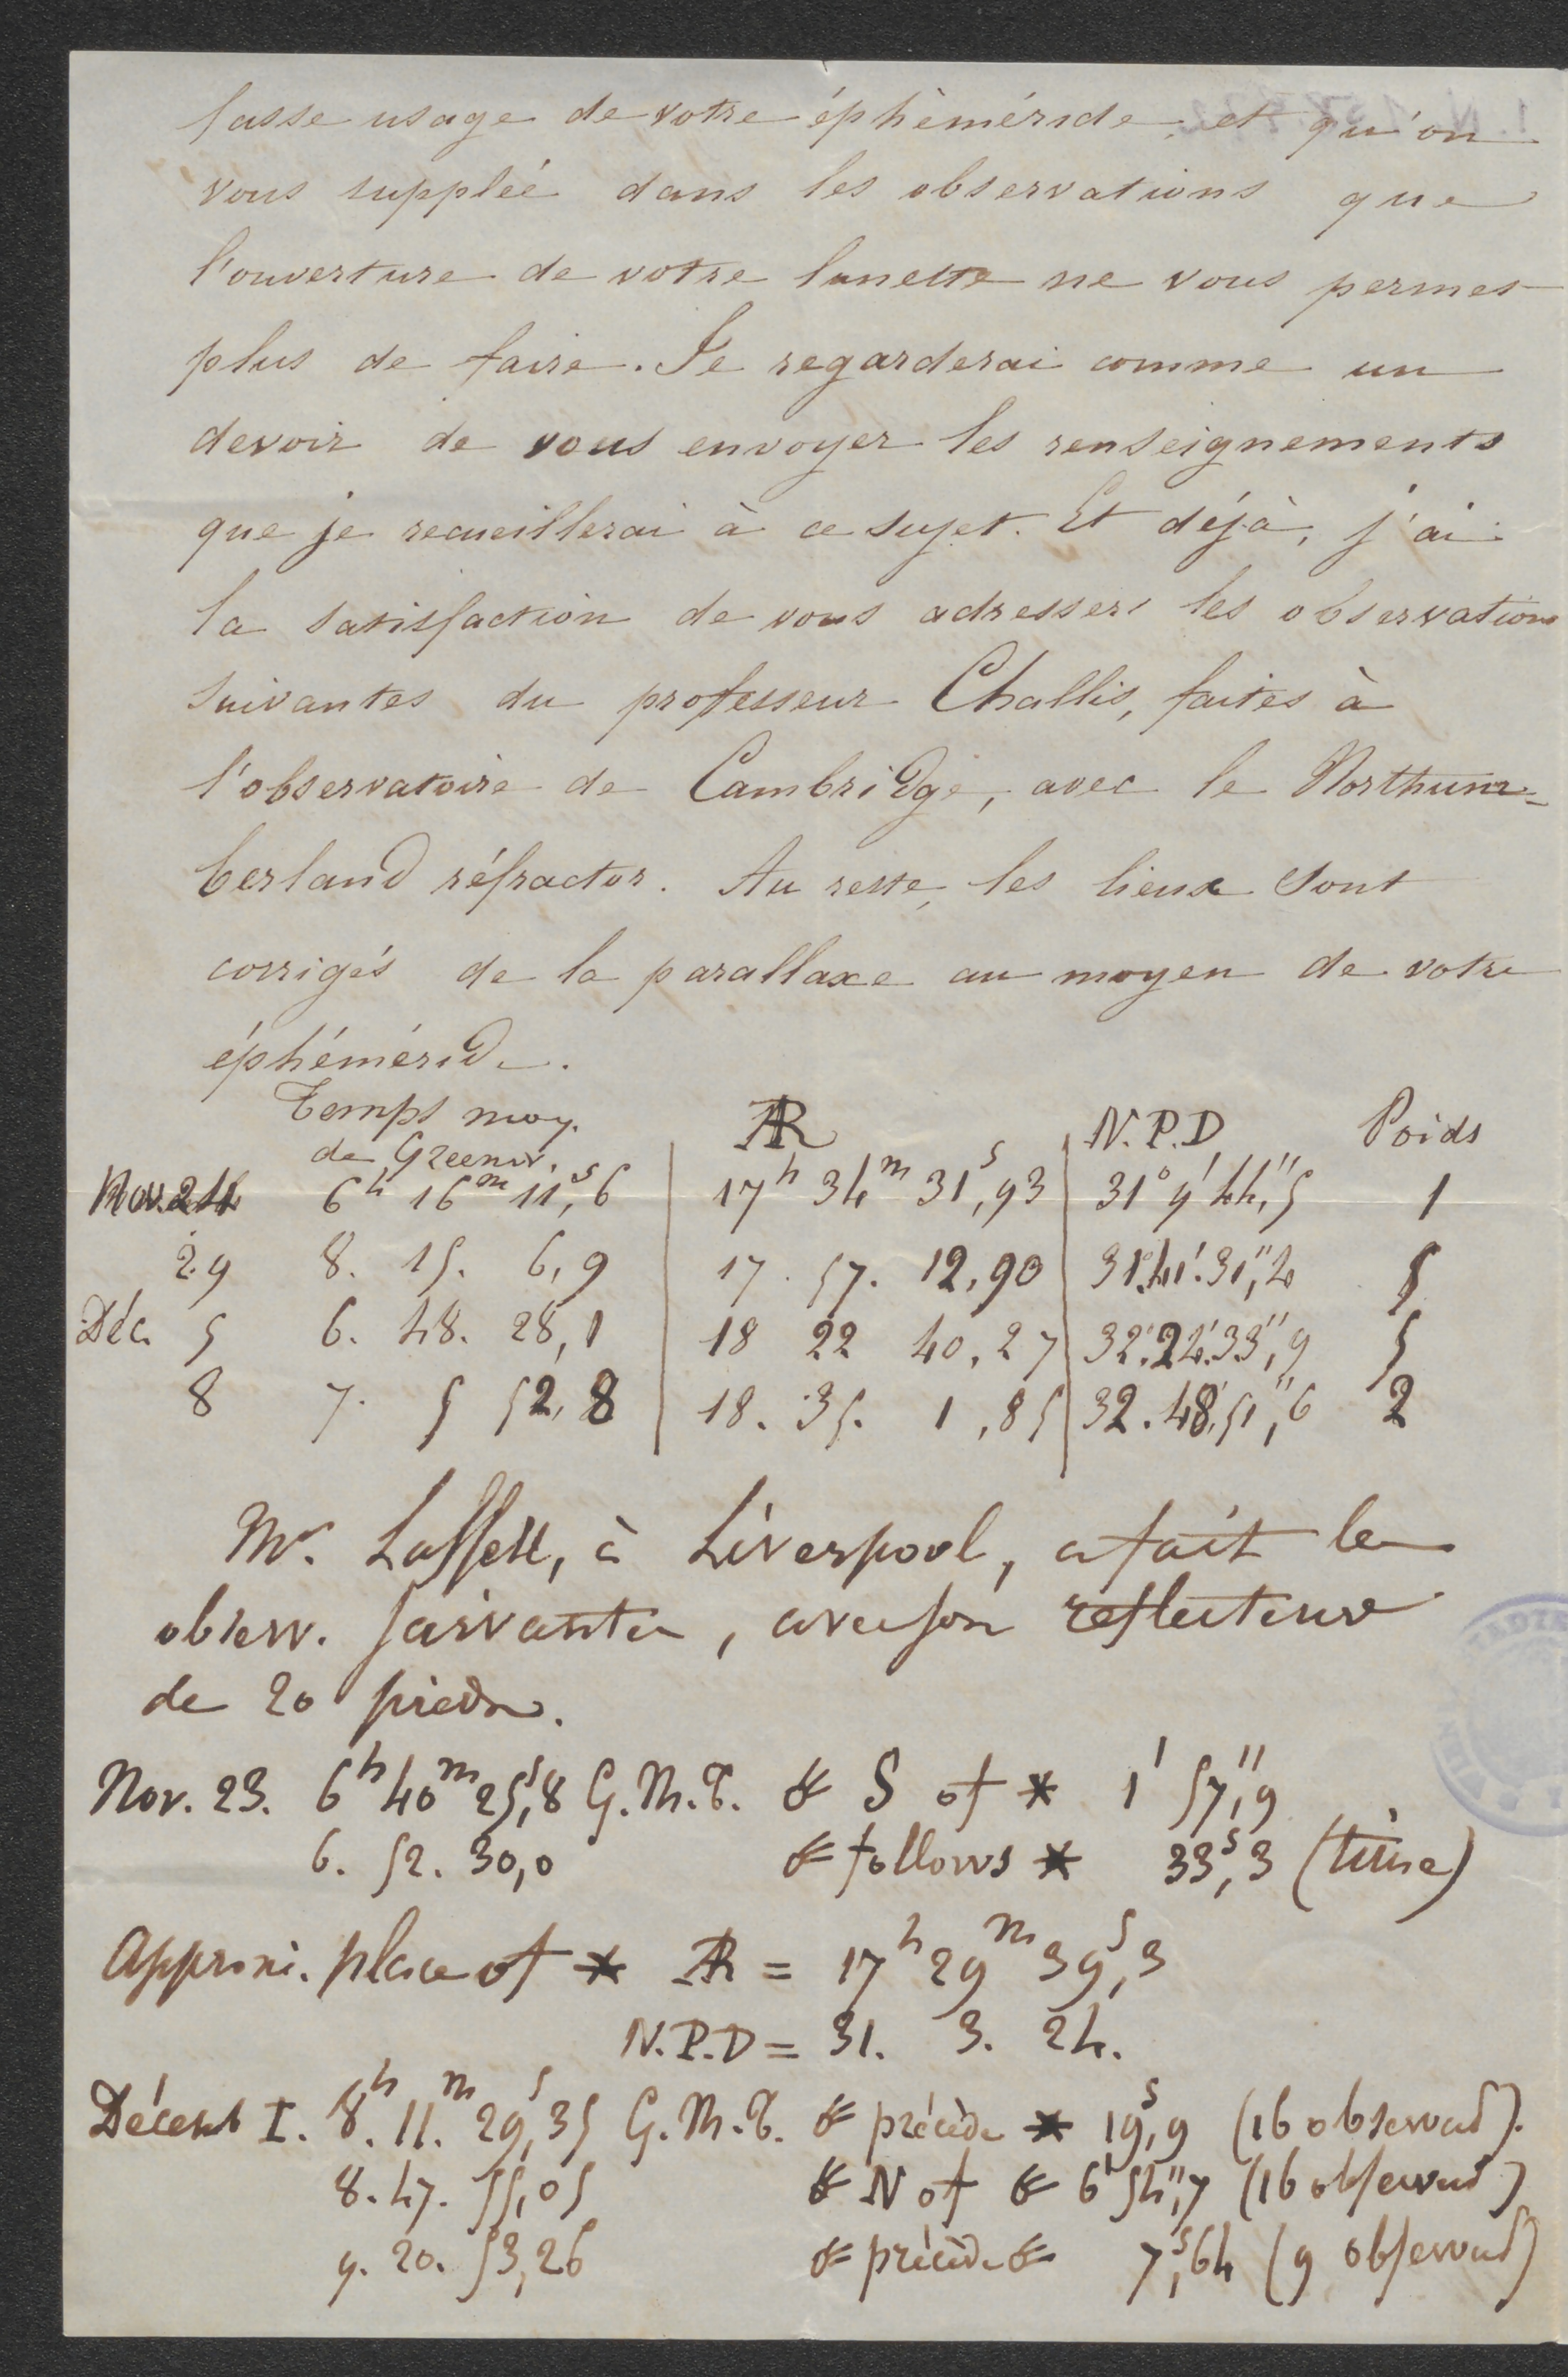 fasse usage de votre éphéméride, et qu'on
vous supplée dans les observations que
l'ouverture de votre lunette ne vous permet
plus de faire. Je regarderai comme un
devoir de vous envoyer les renseignements
que je recueillerai à ce sujet. Et déjà, j'ai
la satisfaction de vous adresser les observations
suivantes du professeur Challis, faites à
l'observatoire de Cambridge, avec le Northum-
berland réfractor. Au reste, les lieux sont
corrigés de la parallaxe au moyen de votre
éphéméride.
Temps moy. de Greenw. AR N.P.D Poids
Nov. 24 6h 16m 11s,6 17h 34m 31s,93 31° 9' 44",5 1
29 8. 15. 6,9 17. 57. 12,90 31° 41'. 31",4 5
Déc. 5 6. 48. 28,1 18 22 40,27 32°. 24'. 33",9 5
8 7. 5 52,8 18. 35. 1,85 32. 48'. 51",6 2
Mr. Lassell, à Liverpool, a fait les
observ. suivantes, avec son reflecteur
de 20 pieds.
Nov. 23. 6h 40m 25s,8 G.M.T. ☄ S of * 1' 57",9
6. 52. 30,0 ☄ follows * 33s,3 (time)
Approxi. place of * AR = 17h 29m 39s,3
N.P.D = 31. 3. 24.
Décemb I. 8h. 11m. 29s,35 G.M.T. ☄ précède * 19s,9 (16 observat).
8. 47. 55,05 ☄ N of ☄ 6' 54",7 (16 observat)
9. 20. 53,26 ☄ précède ☄ 7s,64 (9 observat)